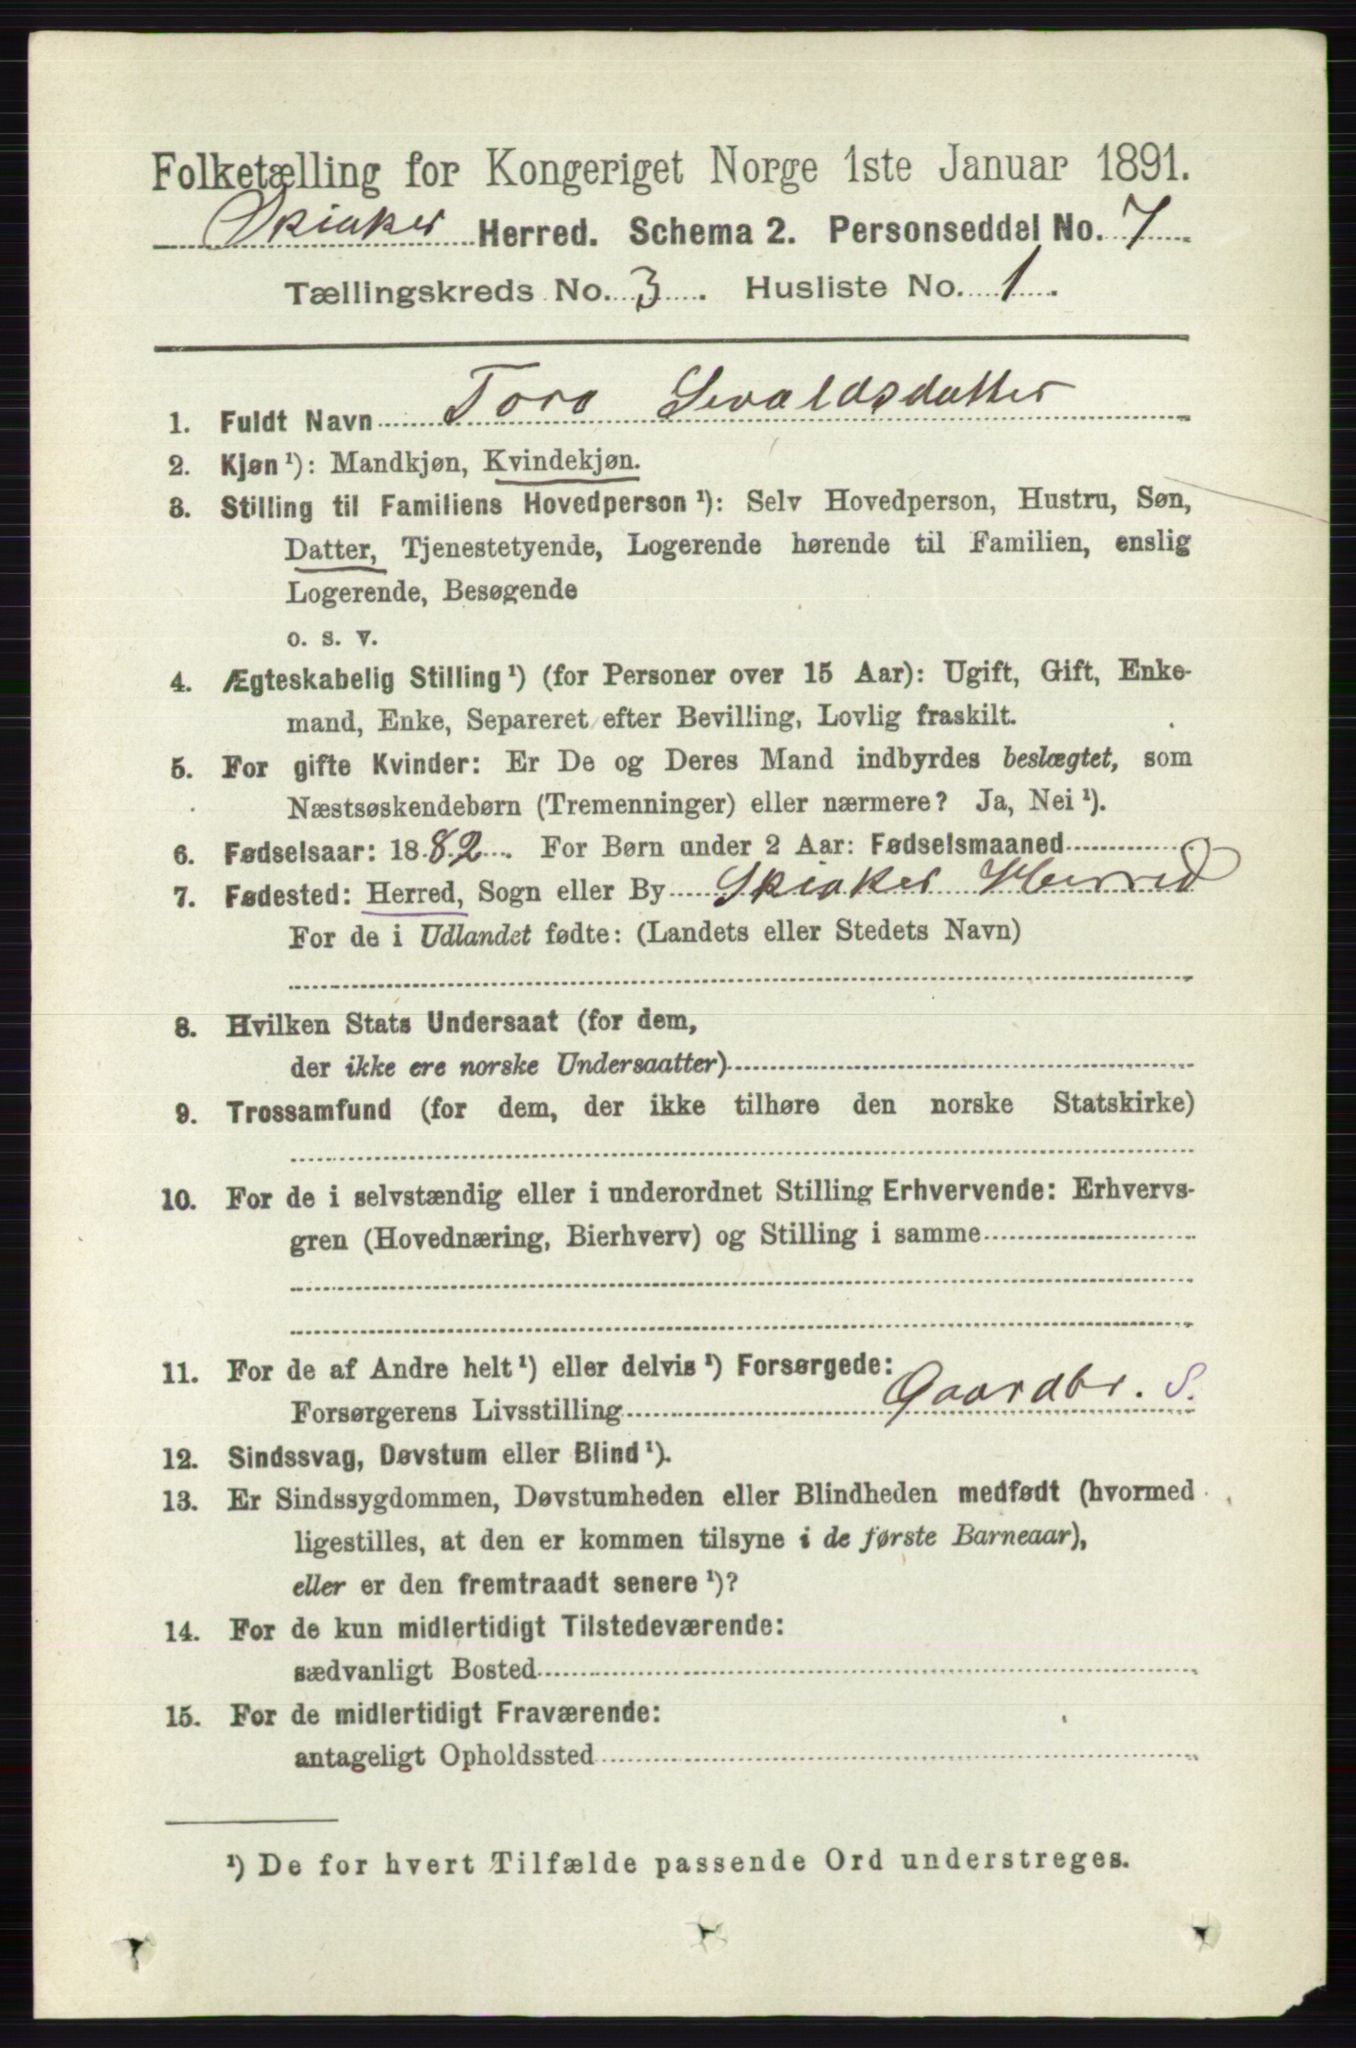 Folketælling for Kongeriget Norge 1ste Januar 1891.
Skiaker Herred. Schema 2. Personseddel No. 7
Tællingskreds No. 3. Husliste No. 1.
1. Fuldt Navn Tora Sevaldsdatter
2. Kjøn¹): Mandkjøn, Kvindekjøn.
3. Stilling til Familiens Hovedperson¹): Selv Hovedperson, Hustru, Søn,
Datter, Tjenestetyende, Logerende hørende til Familien, enslig
Logerende, Besøgende
o. s. v.
4. Ægteskabelig Stilling¹) (for Personer over 15 Aar): Ugift, Gift, Enke-
mand, Enke, Separeret efter Bevilling, Lovlig fraskilt.
5. For gifte Kvinder: Er De og Deres Mand indbyrdes beslægtet, som
Næstsøskendebørn (Tremenninger) eller nærmere? Ja, Nei¹).
6. Fødselsaar: 1882. For Børn under 2 Aar: Fødselsmaaned
7. Fødested: Herred, Sogn eller By Skiaker Herred
For de i Udlandet fødte: (Landets eller Stedets Navn)
8. Hvilken Stats Undersaat (for dem,
der ikke ere norske Undersaatter)
9. Trossamfund (for dem, der ikke tilhøre den norske Statskirke)
10. For de i selvstændig eller i underordnet Stilling Erhvervende: Erhvervs-
gren (Hovednæring, Bierhverv) og Stilling i samme
11. For de af Andre helt¹) eller delvis¹) Forsørgede:
Forsørgerens Livsstilling Gaardbr. S.
12. Sindssvag, Døvstum eller Blind¹).
13. Er Sindssygdommen, Døvstumheden eller Blindheden medfødt (hvormed
ligestilles, at den er kommen tilsyne i de første Barneaar),
eller er den fremtraadt senere¹)?
14. For de kun midlertidigt Tilstedeværende:
sædvanligt Bosted
15. For de midlertidigt Fraværende:
antageligt Opholdssted
¹) De for hvert Tilfælde passende Ord understreges.